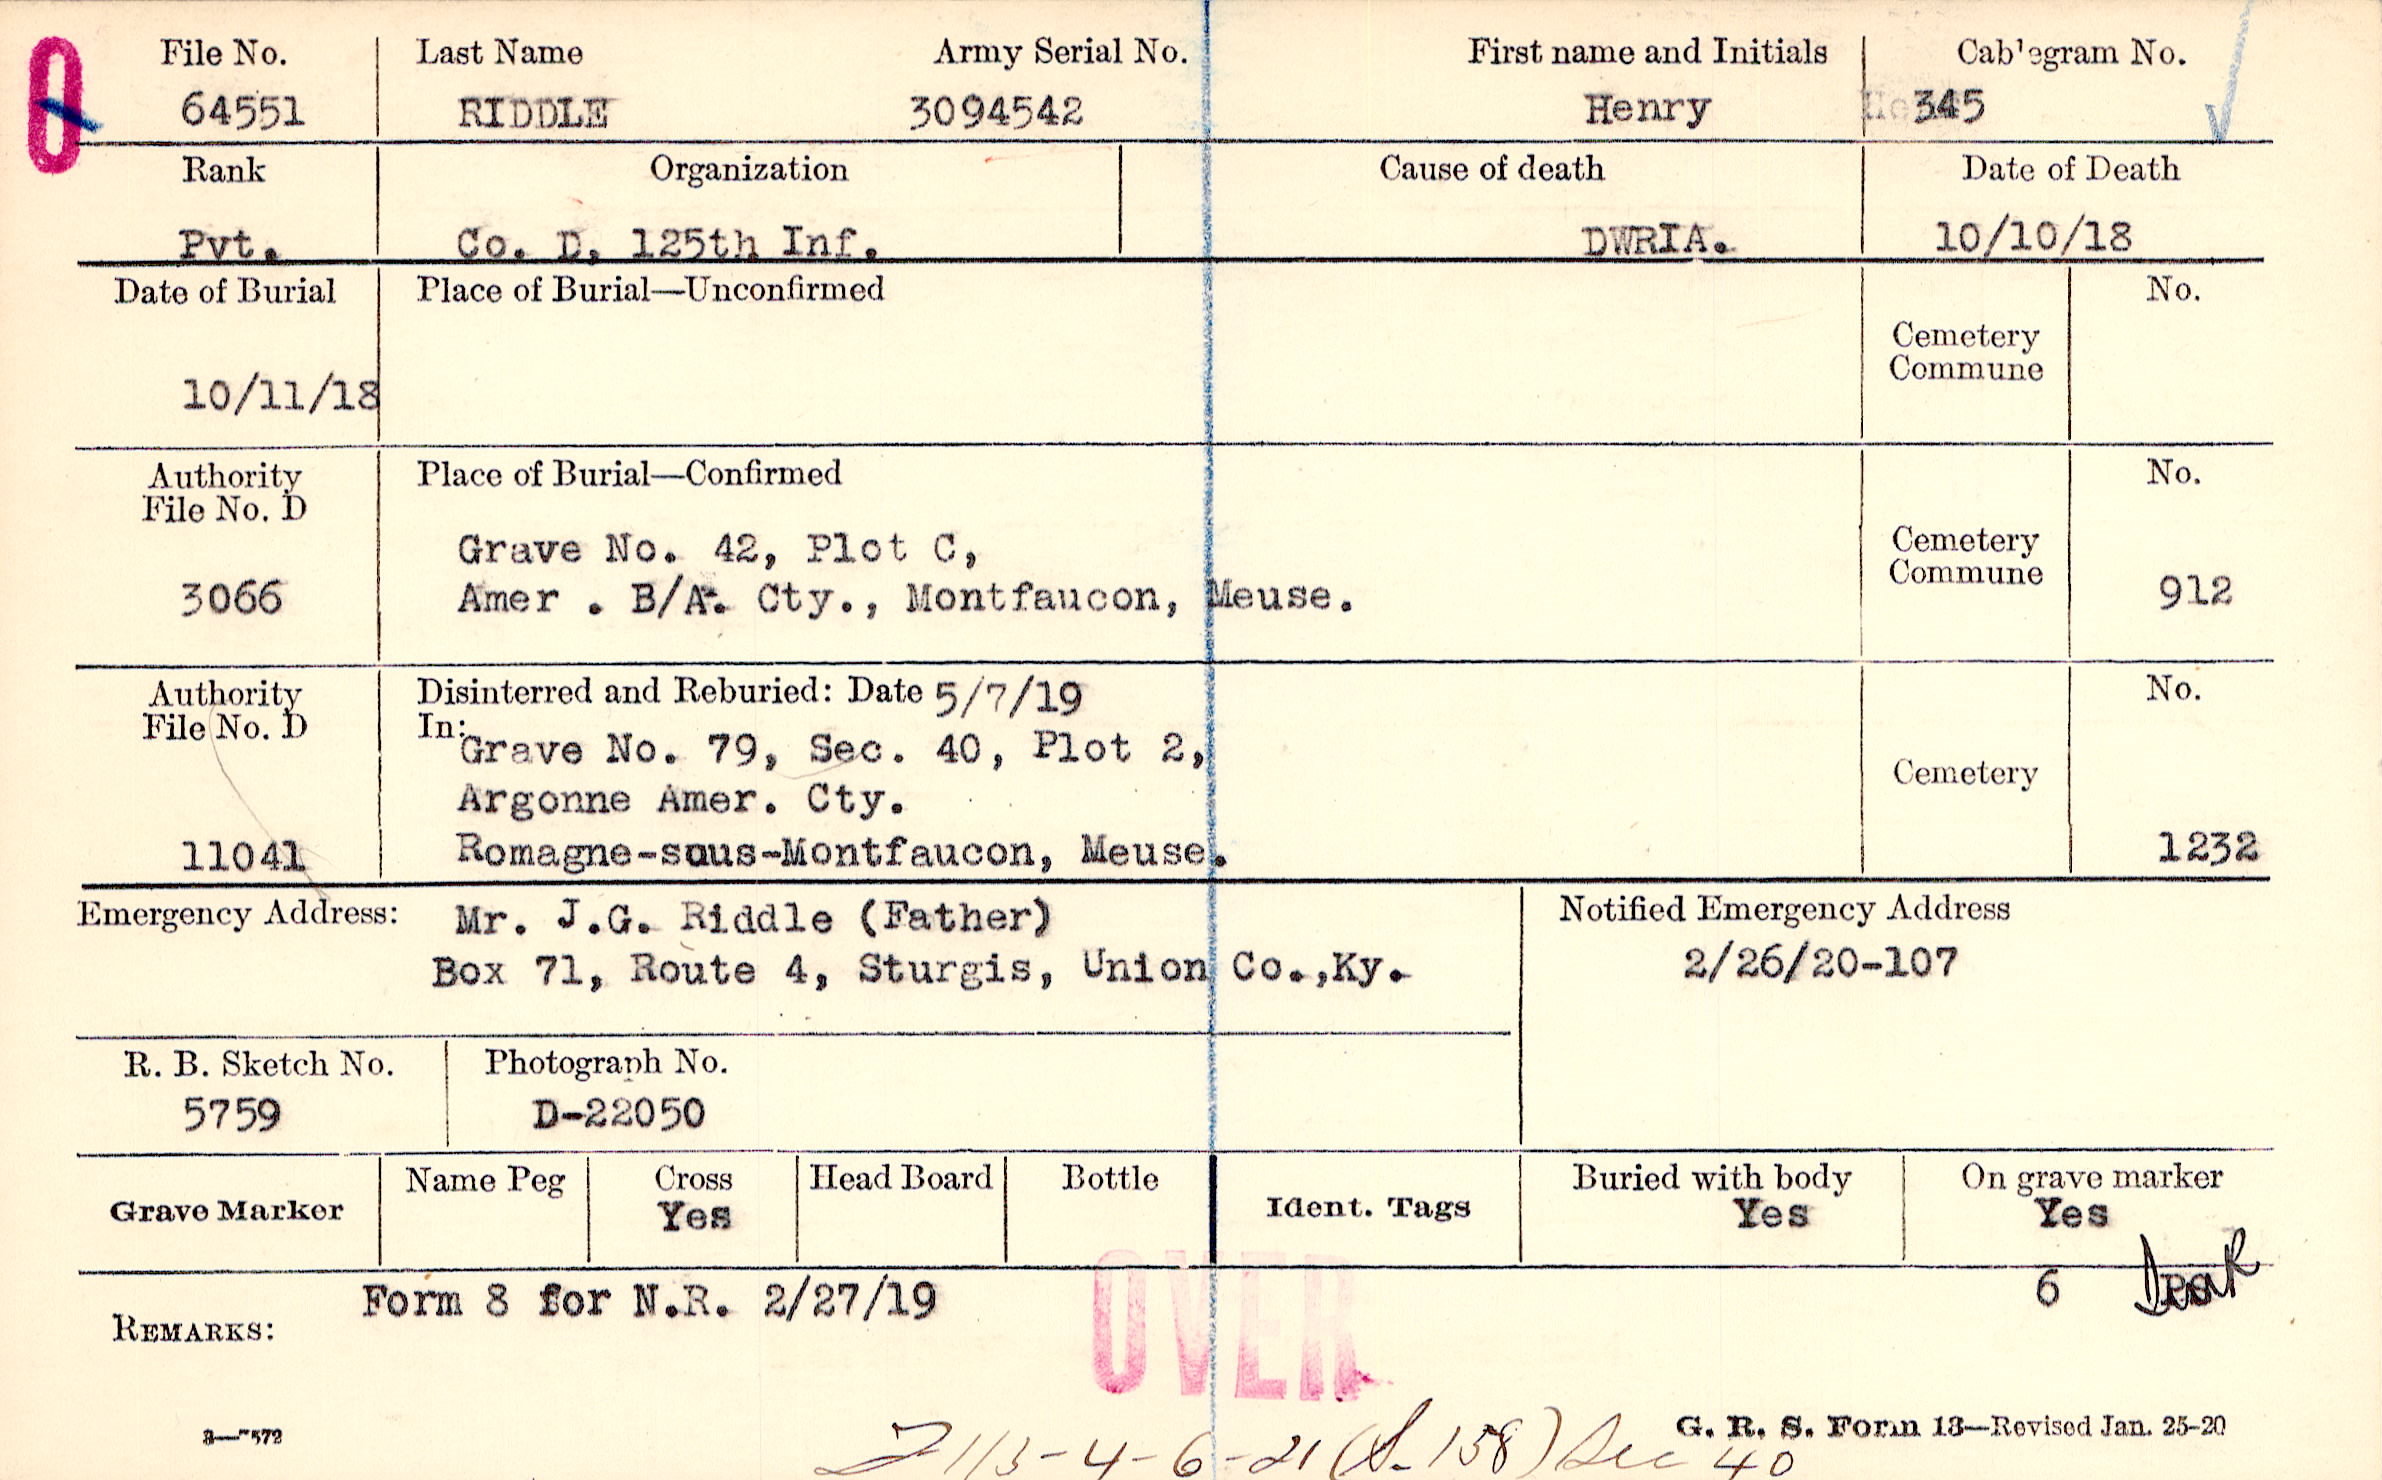 O
File No. Last Name Army Serial No. First name and Initials Cablegram No.
64551 RIDDLE 3094542 Henry 345
Rank Organization Cause of death Date of Death
Pvt. Co. D, 125th Inf. DWRIA. 10/10/18
Date of Burial Place of Burial—Unconfirmed No.
Cemetery
Commune
10/11/18
Authority Place of Burial—Confirmed No.
File No. D
Grave No. 42, Plot C, Cemetery
Commune
3066 Amer . B/A. Cty., Montfaucon, Meuse. 912
Authority Disinterred and Reburied: Date 5/7/19 No.
File No. D In:
Grave No. 79, Sec. 40, Plot 2,
Argonne Amer. Cty. Cemetery
11041 Romagne-sous-Montfaucon, Meuse. 1232
Emergency Address: Mr. J.G. Riddle (Father) Notified Emergency Address
Box 71, Route 4, Sturgis, Union Co.,Ky. 2/26/20-107
R. B. Sketch No. Photograph No.
5759 D-22050
Grave Marker Name Peg Cross Head Board Bottle Ident. Tags Buried with body On grave marker
Yes Yes Yes
Form 8 for N.R. 2/27/19 6
REMARKS:
OVER
3—7572 G. R. S. Form 13—Revised Jan. 25-20
113-4-6-21 (S-158) Sec 40